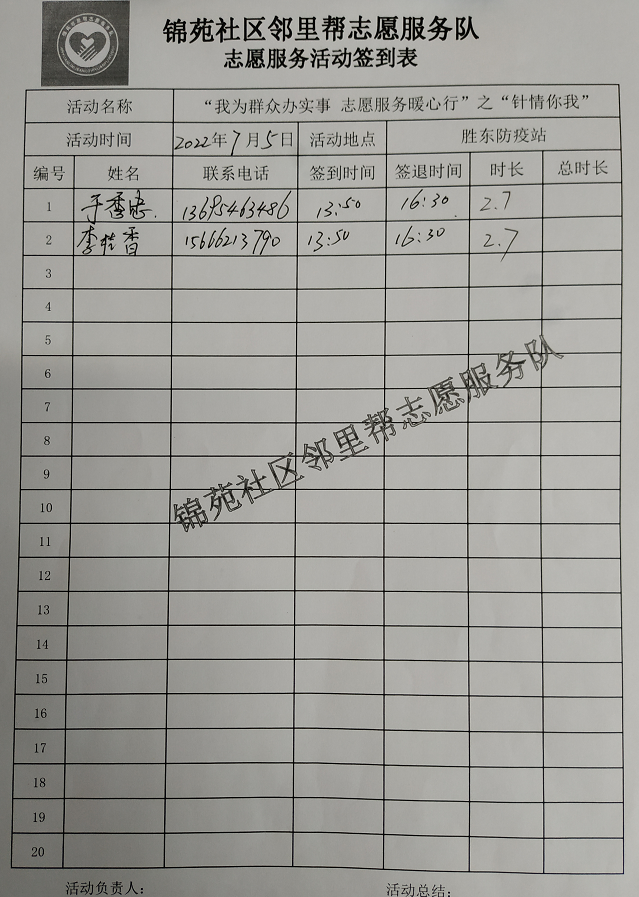 锦苑社区邻里帮志愿服务队
志愿服务活动签到表
活动名称 “我为群众办实事 志愿服务暖心行”之“针情你我”
活动时间 2022年7月5日 活动地点 胜东防疫站
编号 姓名 联系电话 签到时间 签退时间 时长 总时长
1 于香 13695463486 13:50 16:30 2.7
2 李桂香 15666213790 13:50 16:30 2.7
3
4
5
6
7
8
9
10
11
12
13
14
15
16
17
18
19
20
锦苑社区邻里帮志愿服务队
活动负责人： 活动总结：